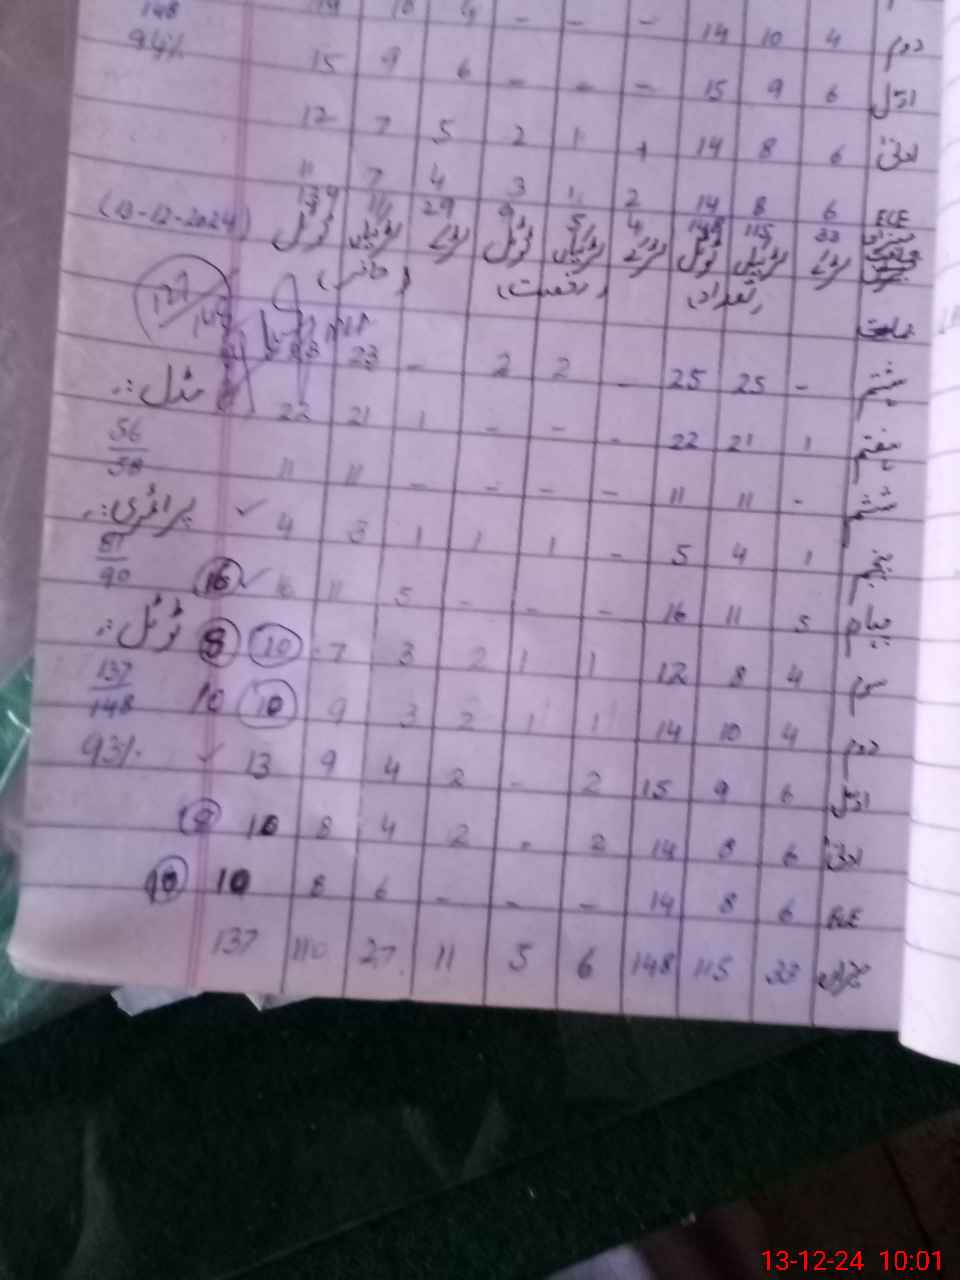 4 10 14 - - - 4 10 14 148
دوم 94%
اول 6 9 15 - - - 6 9 15
ادنیٰ 6 8 14 1 1 2 5 7 12
ECE 6 8 14 2 1 3 4 7 11
33 115 148 4 5 9 29 139
لڑکے لڑکیاں ٹوٹل لڑکے لڑکیاں ٹوٹل لڑکے لڑکیاں ٹوٹل (13-12-2024)
جماعت (تعداد) (رخصت) (حاضر)
ہشتم - 25 25 - 2 2 - 23 23
مڈل :.
ہفتم 1 21 22 - - - 1 21 22
56
58
ششم - 11 11 - - - - 11 11
پرائمری :.
پنجم 1 4 5 - 1 1 1 3 4 ✓
81
90
چہارم 5 11 16 - - - 5 11 16 ✓ 16
ٹوٹل :.
سوم 4 8 12 1 1 2 3 7 10 8
137
148
دوم 4 10 14 1 1 2 3 9 10 10
93%
اول 6 9 15 2 - 2 4 9 13 ✓
ادنیٰ 6 8 14 2 - 2 4 8 10
ECE 6 8 14 - - - 6 8 10 10
میزان 33 115 148 6 5 11 27 110 137
13-12-24 10:01